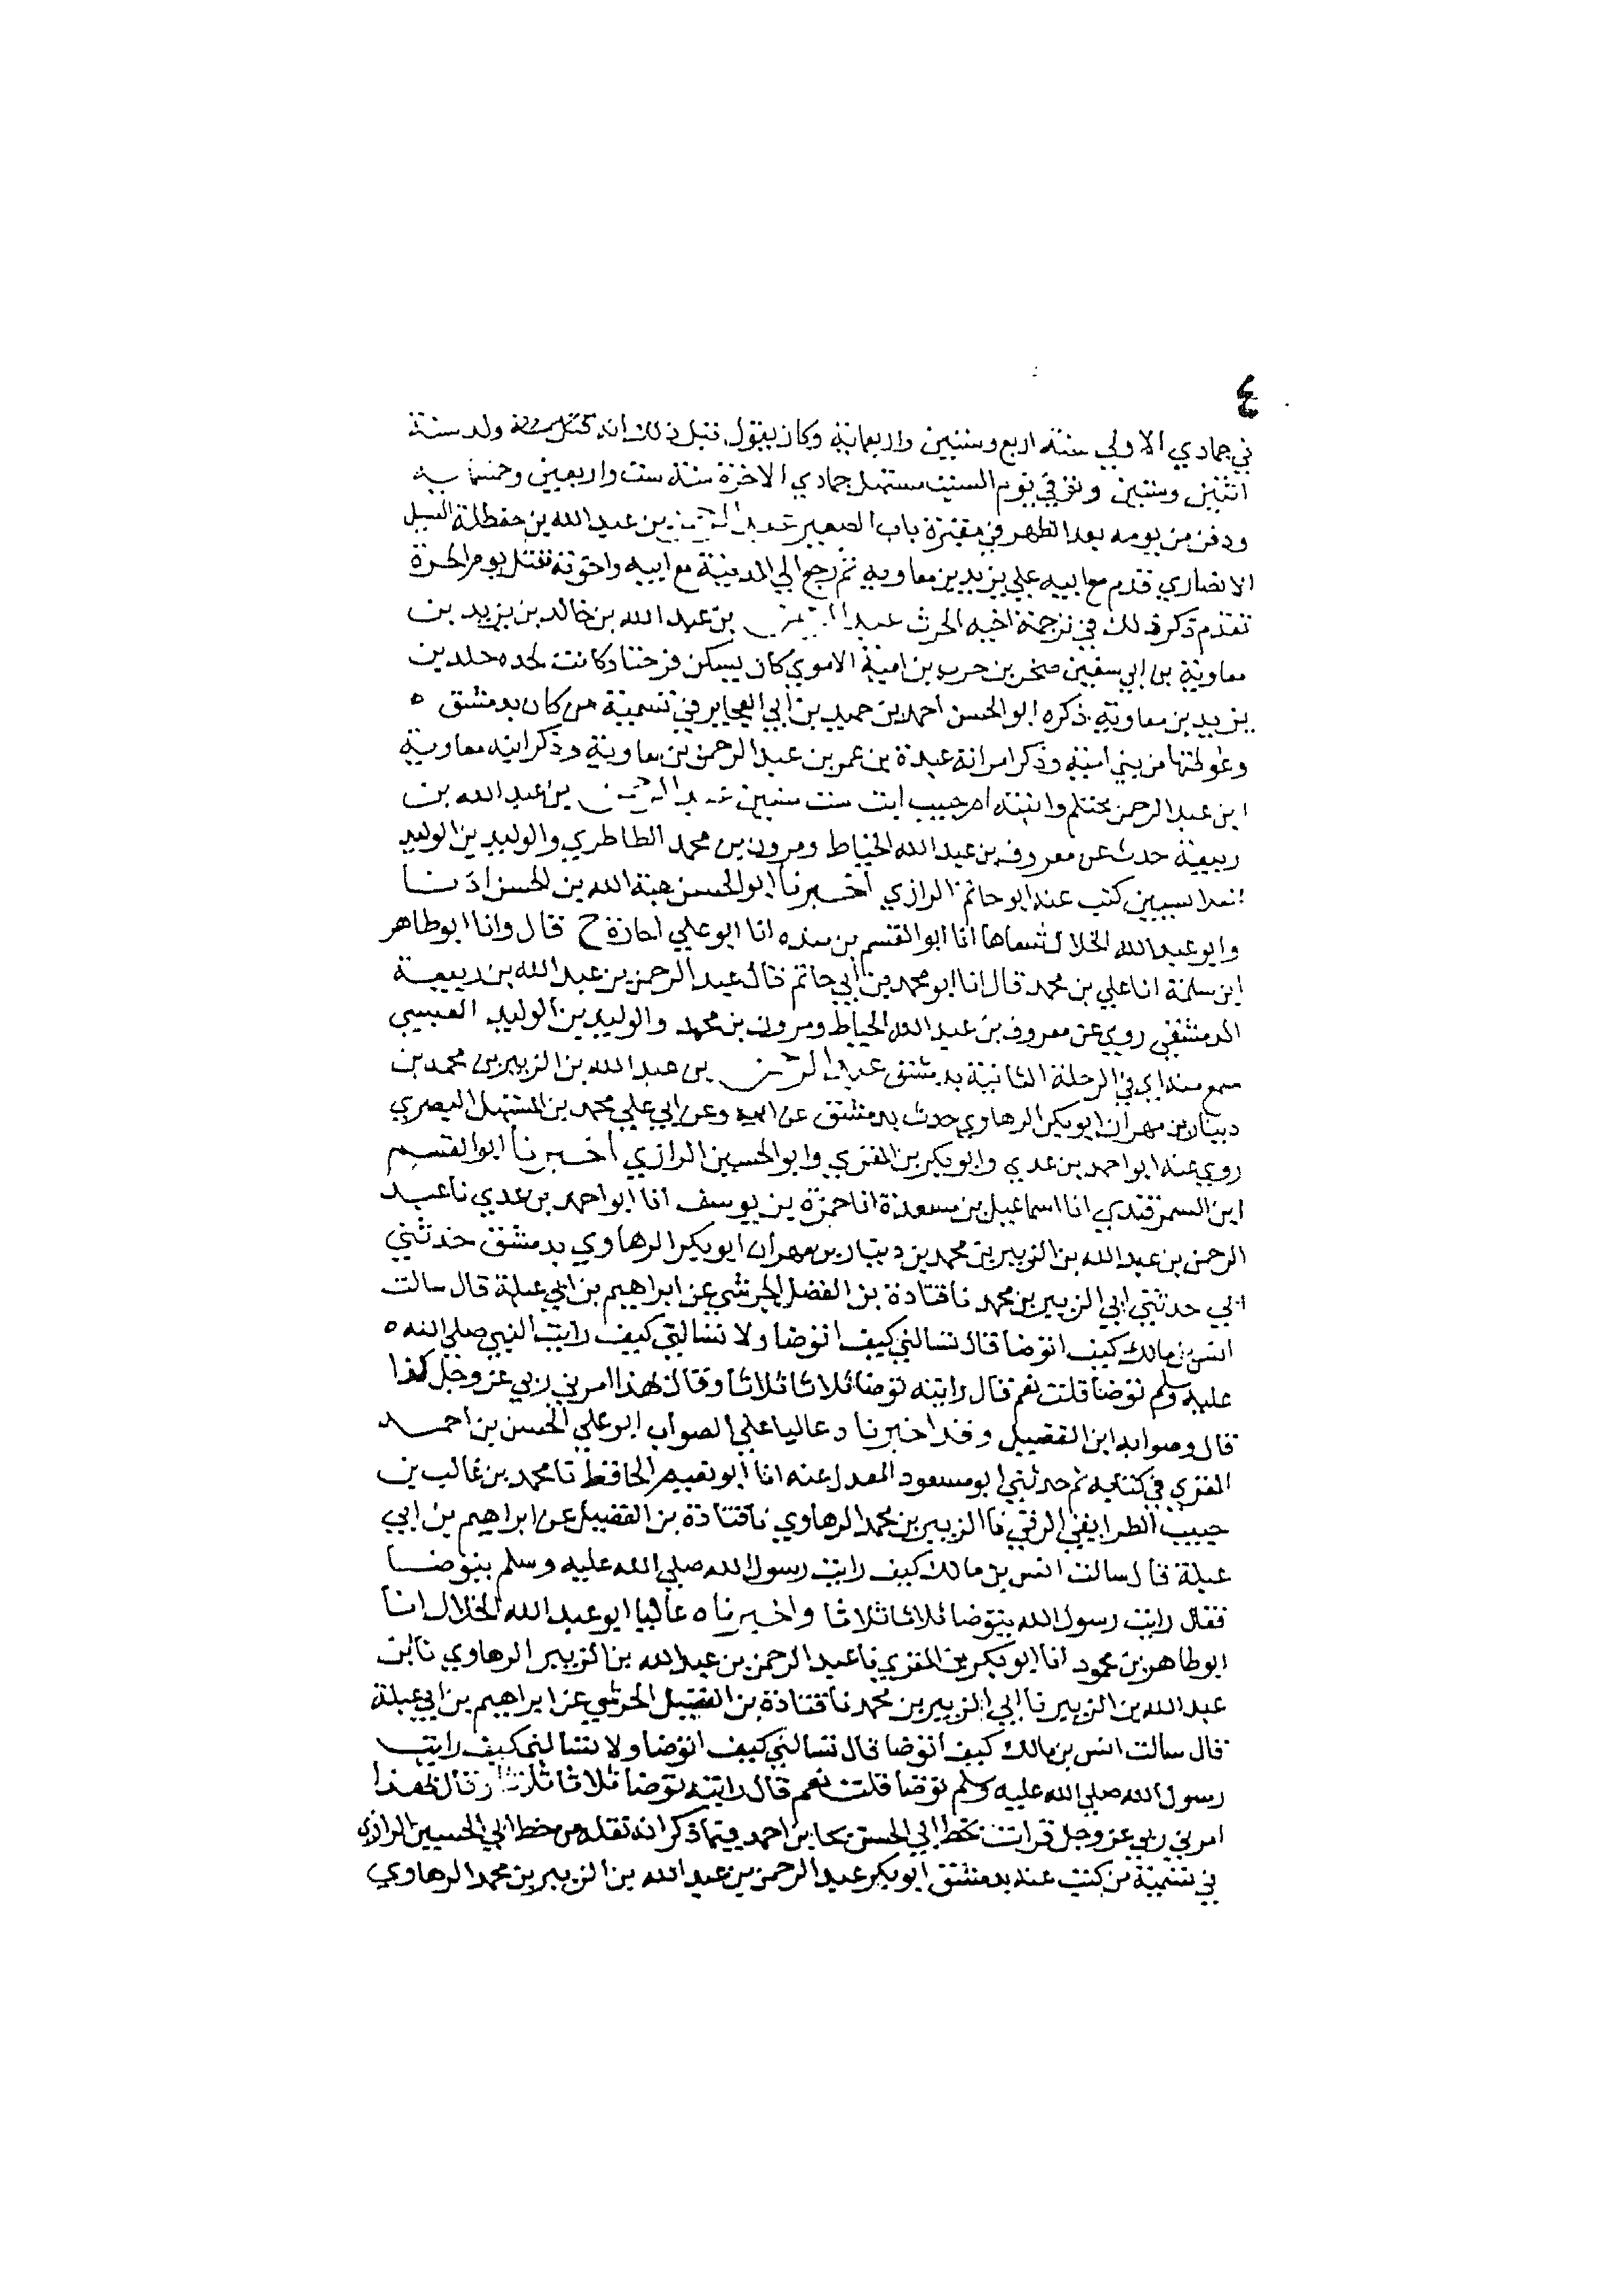 ٤
في جمادي الاولي سنة اربع وستين واربعماية وكان يقول قبل ذلك انه ولد سنة
اثنتين وستين وتوفي يوم السبت مستهل جمادي الاخرة سنة ست واربعين وخمسماية
ودفن من يومه بعد الظهر في مقبرة باب الصغير عبد الرحمن بن عبد الله بن حنظلة الغسيل
الانصاري قدم مع ابيه علي يزيد بن معاوية ثم رجع الي المدينة مع ابيه واخوته فقتل يوم الحرة
تقدم ذكر ذلك في ترجمة اخيه الحرث عبد الرحمن بن عبد الله بن خالد بن يزيد بن
معاوية بن ابي سفين صخر بن حرب بن امية الاموي كان يسكن قرحتا وكانت لجده خلد بن
يزيد بن معاوية ذكره ابو الحسن احمد بن حميد بن ابي العجايز في تسمية من كان بدمشق ه
وغوطتها من بني امية وذكر امراته عبدة بن عمر بن عبد الرحمن بن معاوية وذكر ابنه معاوية
ابن عبد الرحمن محتلم وابنته ام حبيب ابنت ست سنين عبد الرحمن بن عبد الله بن
ربيعة حدث عن معروف بن عبد الله الخياط ومرون بن محمد الطاطري والوليد بن الوليد
كتب عنه ابو حاتم الرازي اخبرنا ابو الحسن هبة الله بن الحسن اذنا
وابو عبد الله الخلال شفاها انا ابو القسم بن منده انا ابو علي اجازة ح قال وانا ابو طاهر
ابن سلمة انا علي بن محمد قال انا ابو محمد بن ابي حاتم قال عبد الرحمن بن عبد الله بن ربيعة
الدمشقي روي عن معروف بن عبد الله الخياط ومرون بن محمد والوليد بن الوليد العبسي
سمع منه ابي في الرحلة الثانية بدمشق عبد الرحمن بن عبد الله بن الزبير بن محمد بن
دينار بن مهران ابو بكر الرهاوي حدث بدمشق عن ابيه وعن ابي علي محمد بن المستهل البصري
روي عنه ابو احمد بن عدي وابو بكر بن المقري وابو الحسين الرازي اخبرنا ابو القسم
ابن السمرقندي انا اسماعيل بن مسعدة انا حمزة بن يوسف انا ابو احمد بن عدي نا عبد
الرحمن بن عبد الله بن الزبير بن محمد بن دينار بن مهران ابو بكر الرهاوي بدمشق حدثني
ابي حدثني ابي الزبير بن محمد نا قتادة بن الفضل الجرشي عن ابراهيم بن ابي عبلة قال سالت
انس بن مالك كيف اتوضا قال تسالني كيف اتوضا ولا تسالني كيف رايت النبي صلي الله ه
عليه وسلم توضا قلت نعم قال رايته توضا ثلاثا ثلاثا وقال بهذا امرني ربي عز وجل كذا
قال وصوابه ابن الفضيل وقد اخبرنا ه عاليا علي الصواب ابو علي الحسن بن احمد
المقري في كتابه ثم حدثني ابو مسعود المعدل عنه انا ابو نعيم الحافظ نا محمد بن غالب بن
حبيب الطرايفي الرقي نا الزبير بن محمد الرهاوي نا قتادة بن الفضيل عن ابراهيم بن ابي
عبلة قال سالت انس بن مالك كيف رايت رسول الله صلي الله عليه وسلم يتوضا
فقال رايت رسول الله يتوضا ثلاثا ثلاثا واخبرناه عاليا ابو عبد الله الخلال انا
ابو طاهر بن محمود انا ابو بكر بن المقري نا عبد الرحمن بن عبد الله بن الزبير الرهاوي نا ابن
عبد الله بن الزبير نا ابي الزبير بن محمد نا قتادة بن الفضيل الحرشي عن ابراهيم بن ابي عبلة
قال سالت انس بن مالك كيف اتوضا قال تسالني كيف اتوضا ولا تسالني كيف رايت
رسول الله صلي الله عليه وسلم توضا قلت نعم قال رايته توضا ثلاثا ثلاثا وقال بهذا
امرني ربي عز وجل قرات بخط ابي الحسن نجا بن احمد فيما ذكر انه نقله من خط ابي الحسين الرازي
في تسمية من كتب عنه بدمشق ابو بكر عبد الرحمن بن عبد الله بن الزبير بن محمد الرهاوي